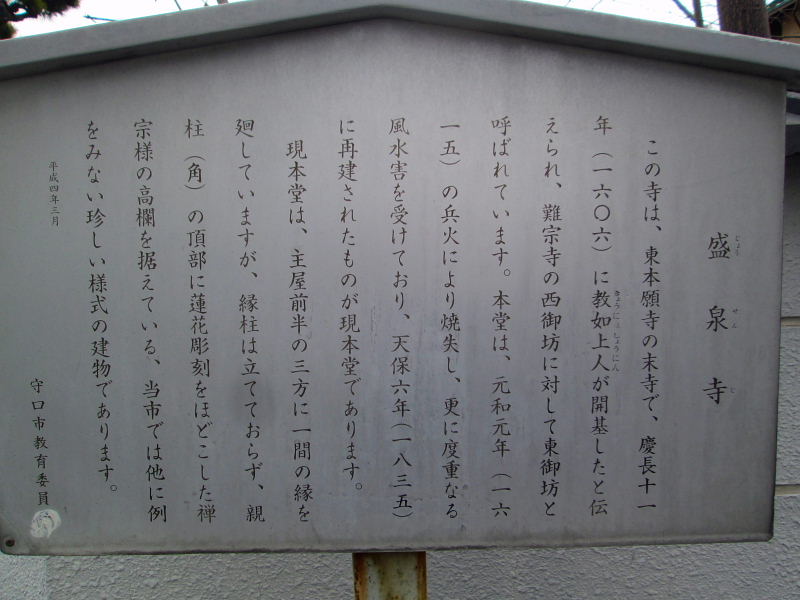 盛泉寺
じょうせんじ
この寺は、東本願寺の末寺で、慶長十一
年（一六〇六）に教如上人が開基したと伝
きょうにょしょうにん
えられ、難宗寺の西御坊に対して東御坊と
呼ばれています。本堂は、元和元年（一六
一五）の兵火により焼失し、更に度重なる
風水害を受けており、天保六年（一八三五）
に再建されたものが現本堂であります。
現本堂は、主屋前半の三方に一間の縁を
廻していますが、縁柱は立てておらず、親
柱（角）の頂部に蓮花彫刻をほどこした禅
宗様の高欄を据えている、当市では他に例
をみない珍しい様式の建物であります。
平成四年三月
守口市教育委員